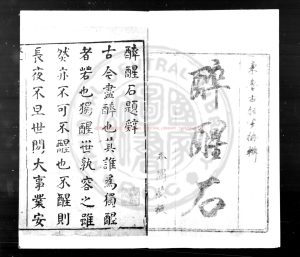 東魯古狂生編輯
醉醒石
醉醒石題辭
古今盡醉也其誰爲獨醒
者若也獨醒世孰容之雖
然亦不可不醒也不醒則
長夜不旦世間大事業安